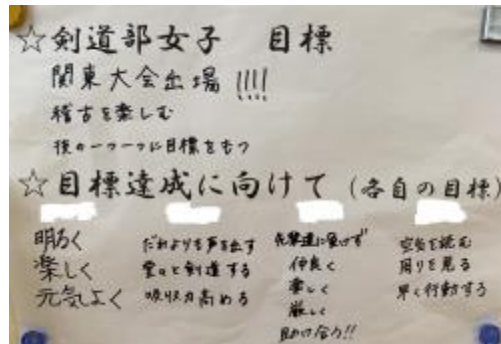 ☆剣道部女子 目標
関東大会出場!!!!
稽古を楽しむ
技の一つ一つに目標をもつ
☆目標達成に向けて(各自の目標)
明るく
楽しく
元気よく
だれよりも声を出す
堂々と剣道する
吸収力高める
先輩達に負けず
仲良く
楽しく
厳しく
助け合う!!
空気を読む
周りを見る
早く行動する